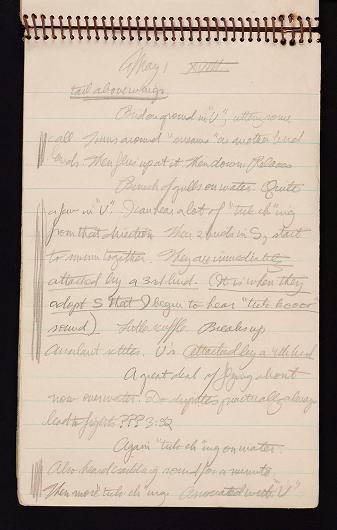 May 1 XVIII
tail above wings
Bird on ground in "V", uttering some
call. Turns around "screams" as another bird
lands. Then flies up at it. Then down.
Bunch of gulls on water. Quite
a few in "V". I can hear a lot of "tuk-ch"ing
from that direction. Then 2 birds in S2 start
to swim together. They are immediately
attacked by a 3rd bird. (It is when they
adopt S that I begin to hear "tuk-koooo
sound). Little scuffle. Breaks up
settles. V's. Attacked by a 4th bird
A great deal of flying about
now over water. Do practically always
lead to fights??? 3:32
Again "tuk-ch"ing on water.
Also heard sound for a minute.
Then more "tuk-ch"ings. Associated with "V"